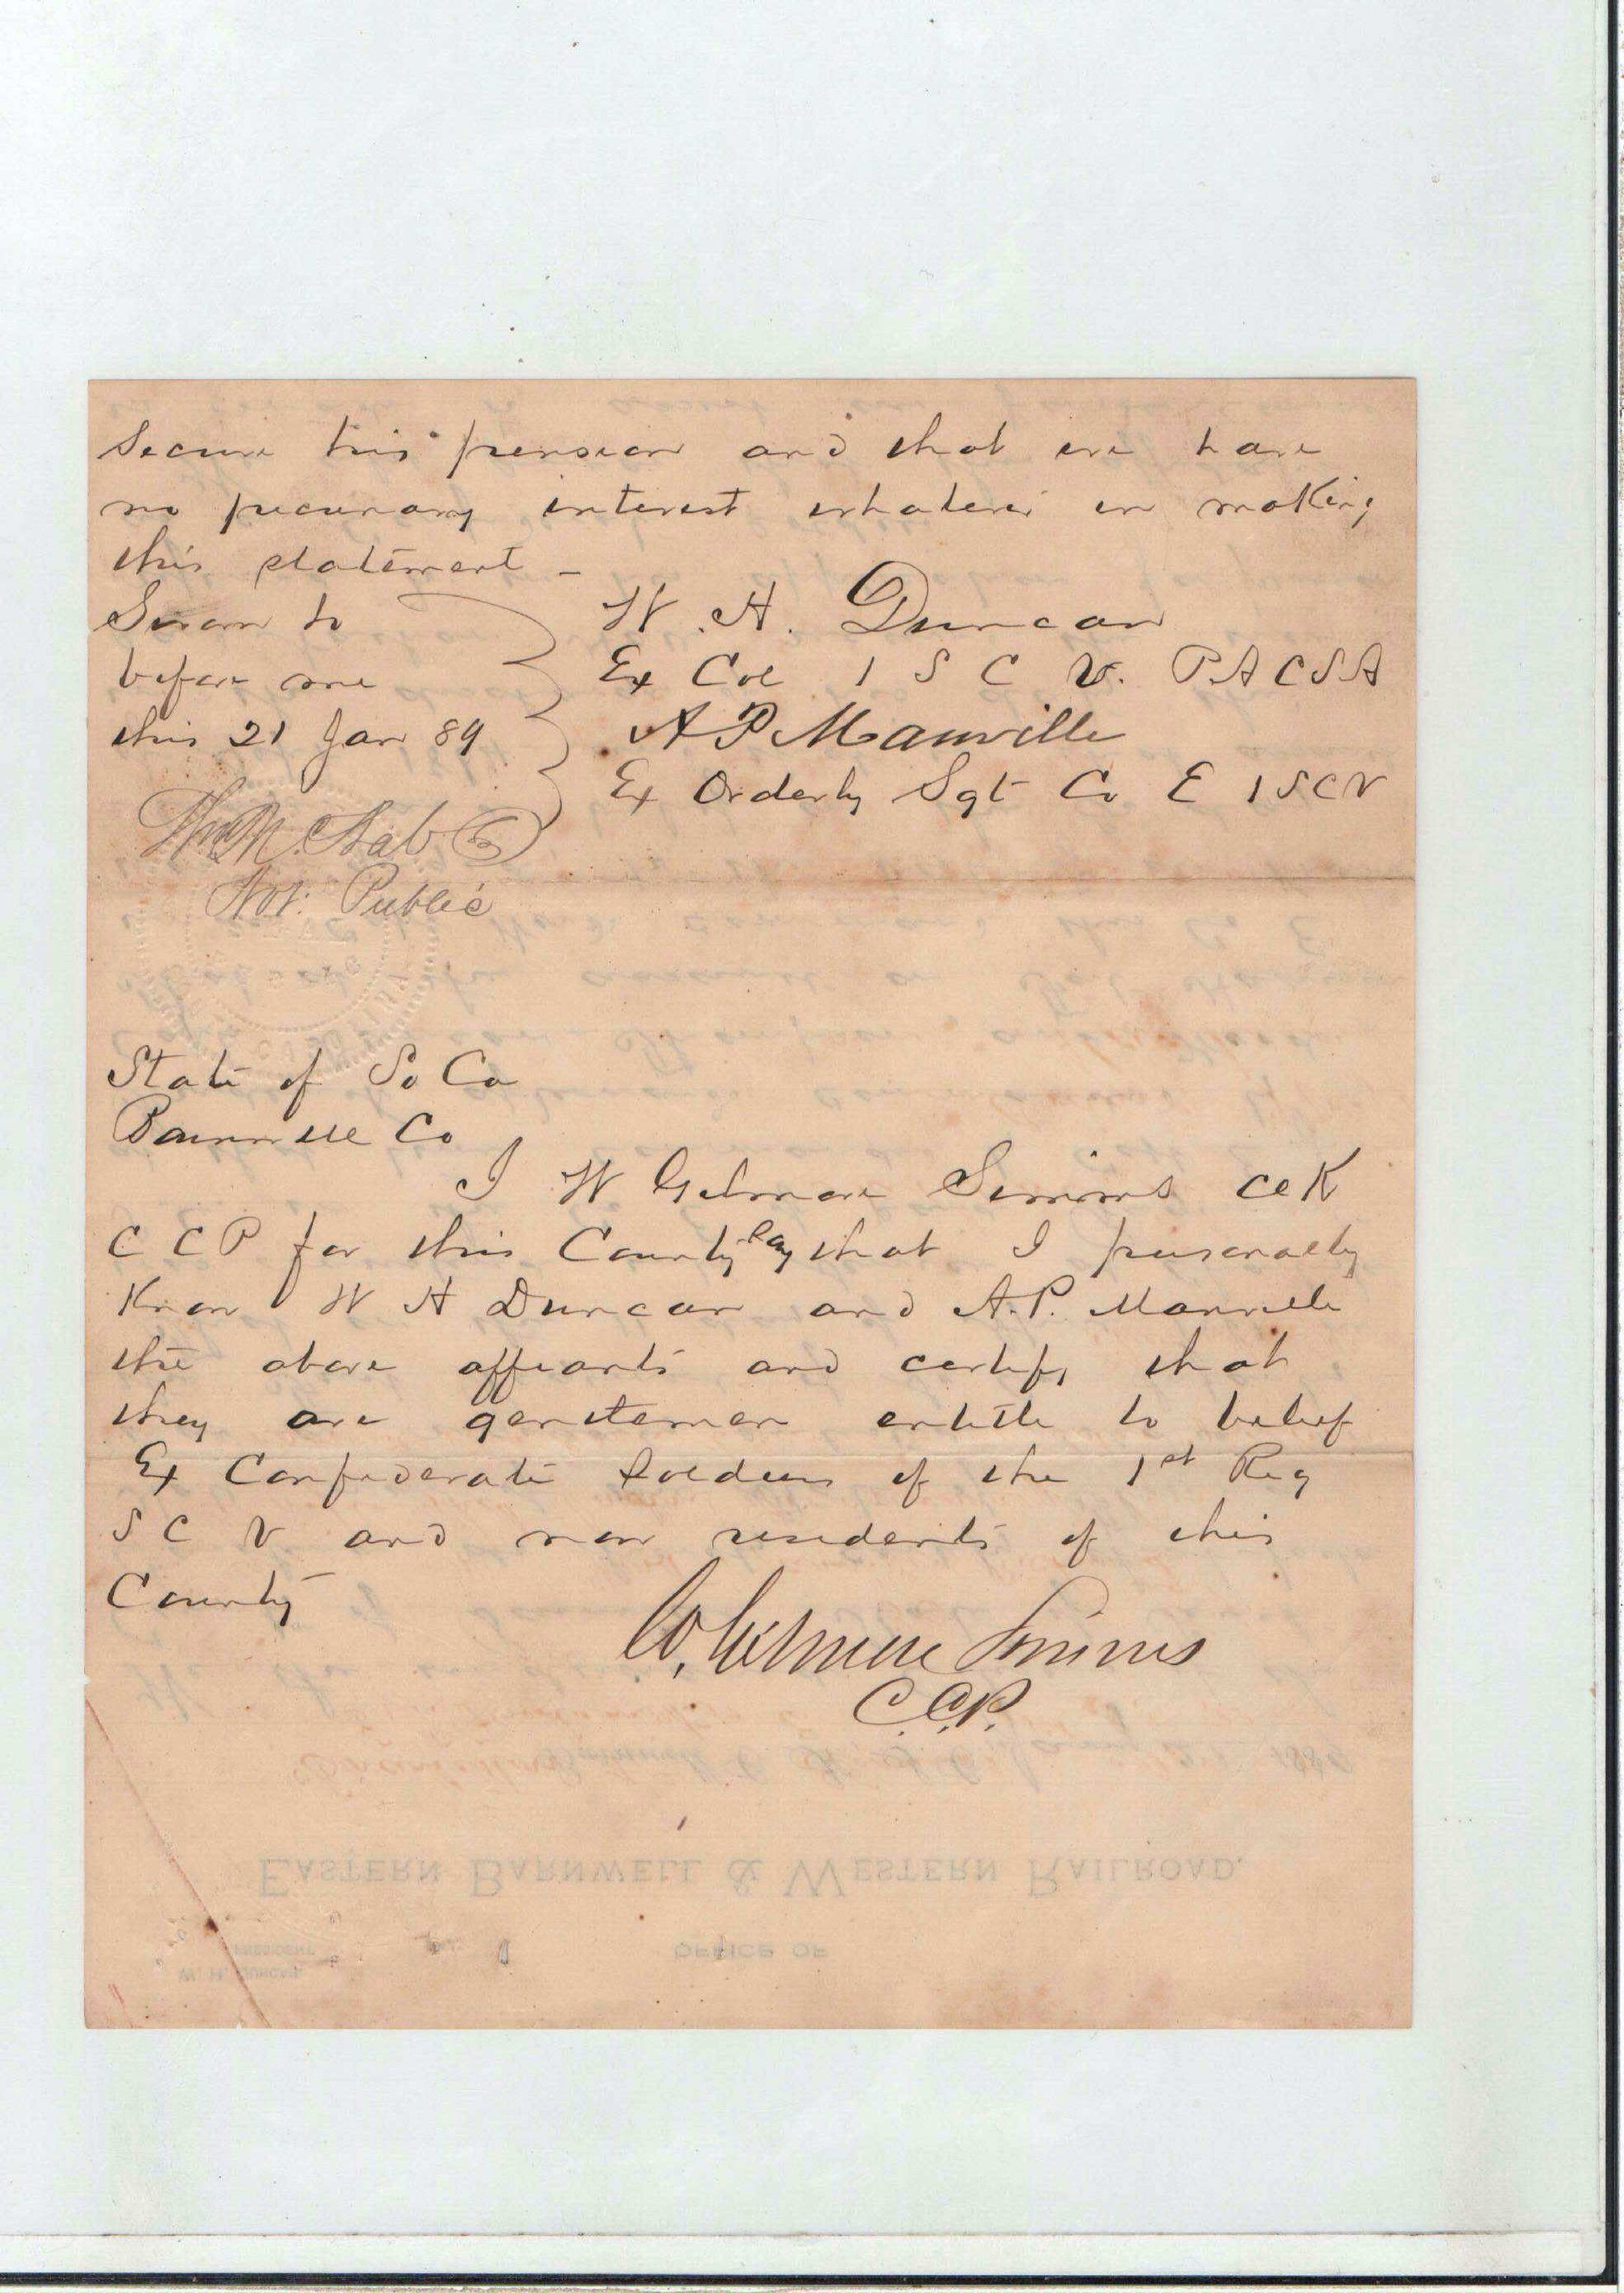 secure his pension and that we have
no pecunary interest whatever in making
this statement –
Sworn to
before me
this 21 Jan 89
W. H. Duncan
Ex Col 1 S C V. PACSA
A P Manville
Ex Orderly Sgt Co E 1 SCV
Not: Public
State of So Ca
Barnwell Co
I W Gilmore Simms ClK
C C P for this County say that I personally
Know W H Duncan and A.P. Manville
the above affiants and certify that
they are gentlemen entitle to belief
Ex Confederate Soldiers of the 1st Reg
S C V and now residents of this
County
W. Gilmore Simms
C.C.P.
EASTERN BARNWELL & WESTERN RAILROAD.
OFFICE OF
W. H. DUNCAN,
PRESIDENT